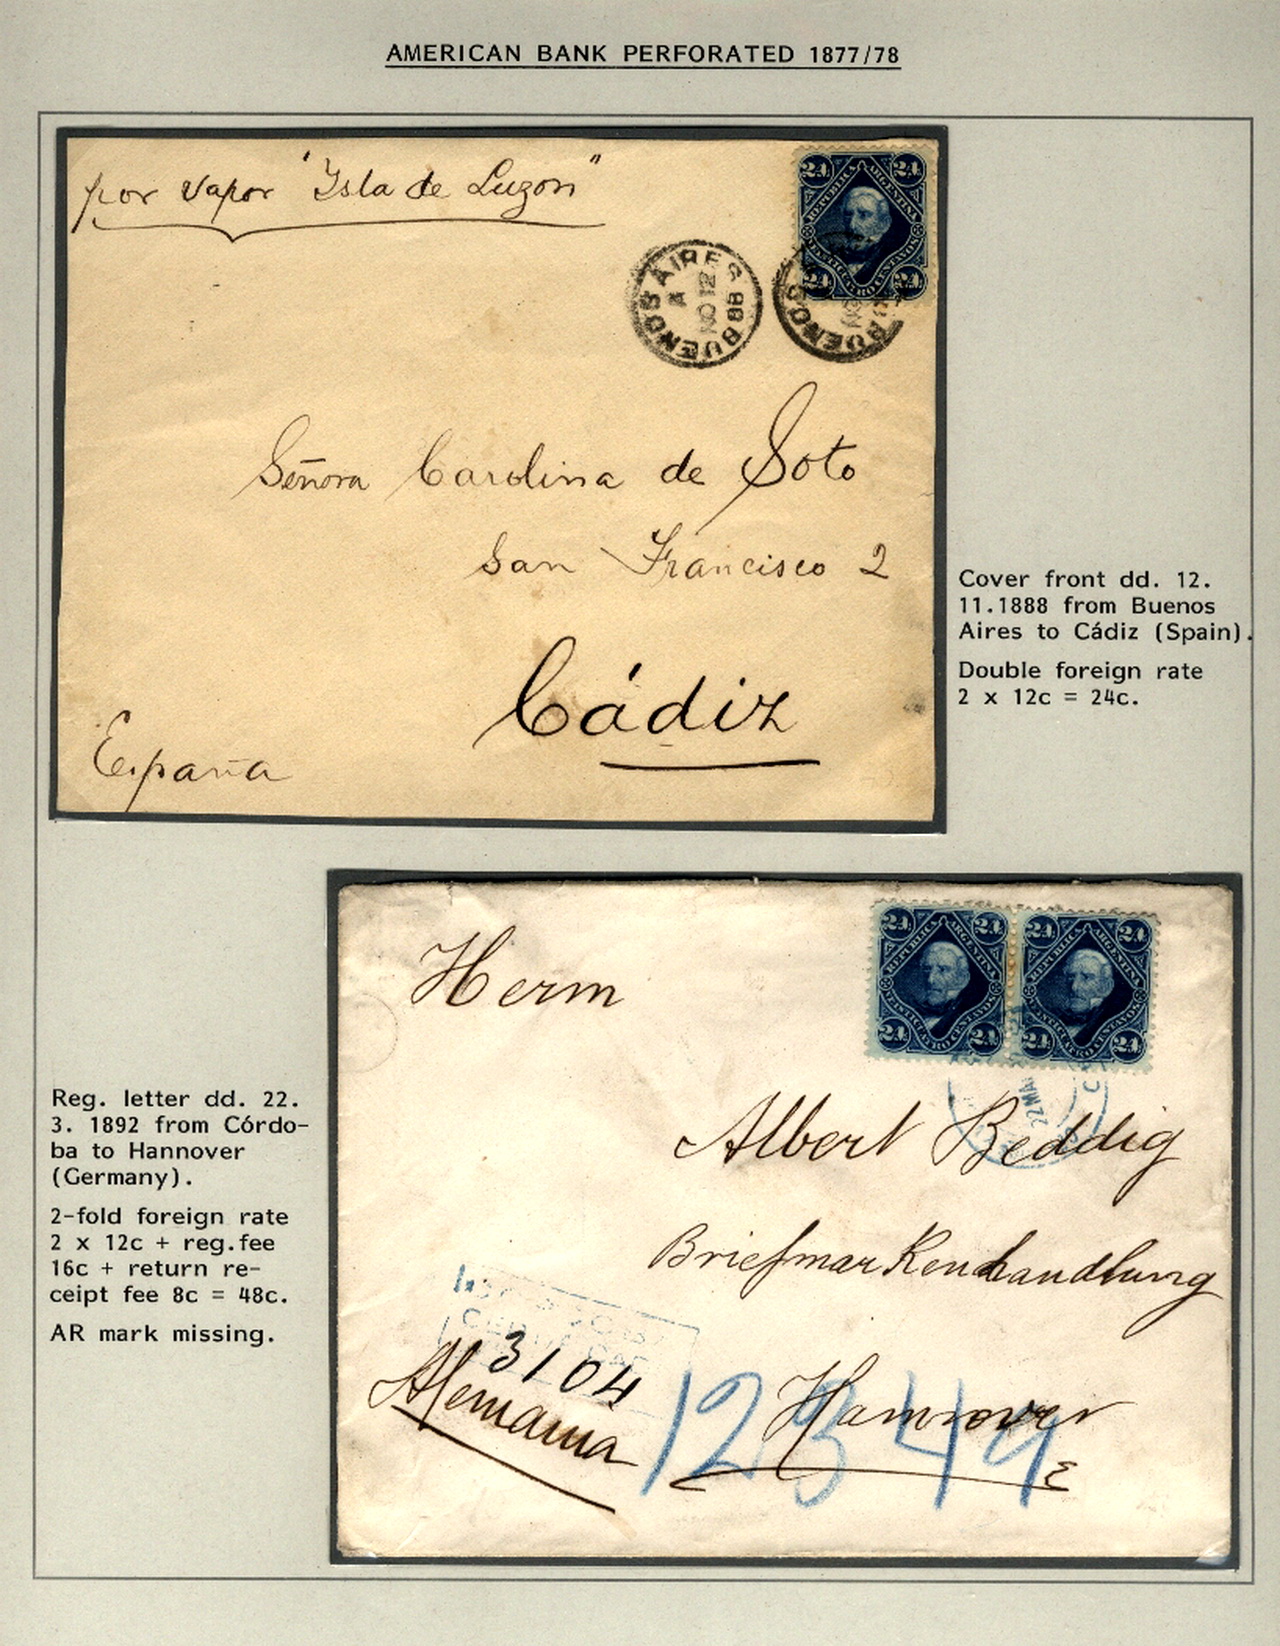 AMERICAN BANK PERFORATED 1877/78
por vapor "Isla de Luzon"
24 24
REPUBLICA ARGENTINA
VEINTICUATRO CENTAVOS
24 24
BUENOS AIRES
A
NO 12
88
BUENOS
Señora Carolina de Soto
San Francisco 2
Cádiz
España
Cover front dd. 12.
11.1888 from Buenos
Aires to Cádiz (Spain).
Double foreign rate
2 x 12c = 24c.
Herrn
24 24 24 24
REPUBLICA ARGENTINA REPUBLICA ARGENTINA
VEINTICUATRO CENTAVOS VEINTICUATRO CENTAVOS
24 24 24 24
22 MA
Albert Beddig
Briefmarkenhandlung
Hannover
3104
Alemania
12344
Reg. letter dd. 22.
3. 1892 from Córdo-
ba to Hannover
(Germany).
2-fold foreign rate
2 x 12c + reg.fee
16c + return re-
ceipt fee 8c = 48c.
AR mark missing.